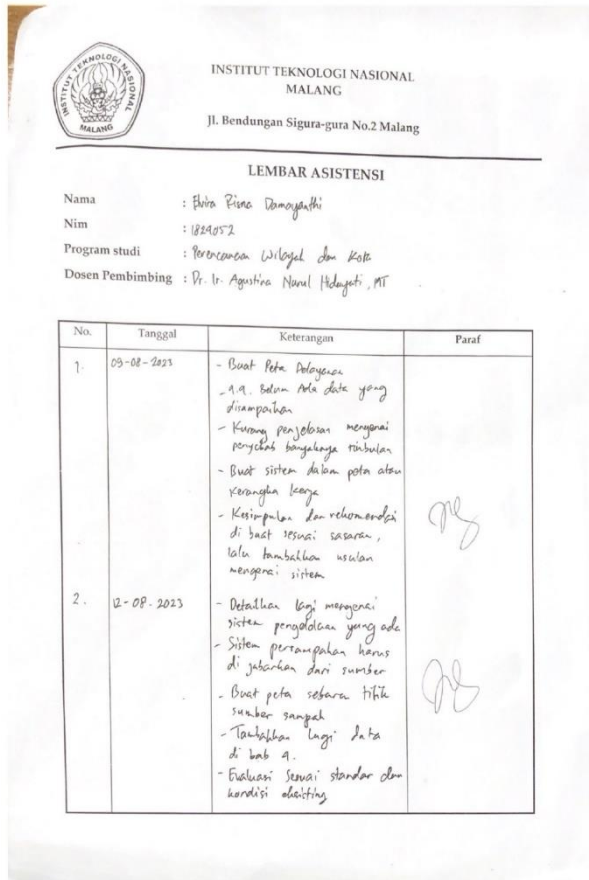 INSTITUT TEKNOLOGI NASIONAL
MALANG
INSTITUT TEKNOLOGI NASIONAL
MALANG
Jl. Bendungan Sigura-gura No.2 Malang
LEMBAR ASISTENSI
Nama : Elvira Risna Damayanthi
Nim : 1824052
Program studi : Perencanaan Wilayah dan Kota
Dosen Pembimbing : Dr. Ir. Agustina Nurul Hidayati, MT
No. Tanggal Keterangan Paraf
1. 09-08-2023 - Buat Peta Pelayanan
- 4.4. Belum Ada data yang
disampaikan
- Kurang penjelasan mengenai
penyebab banyaknya timbulan
- Buat sistem dalam peta atau
kerangka kerja
- Kesimpulan dan rekomendasi
di buat sesuai sasaran,
lalu tambahkan usulan
mengenai sistem
2. 12-08-2023 - Detailkan lagi mengenai
sistem pengelolaan yang ada
- Sistem persampahan harus
di jabarkan dari sumber
- Buat peta sebaran titik
sumber sampah
- Tambahkan lagi data
di bab 4.
- Evaluasi sesuai standar dan
kondisi eksisting